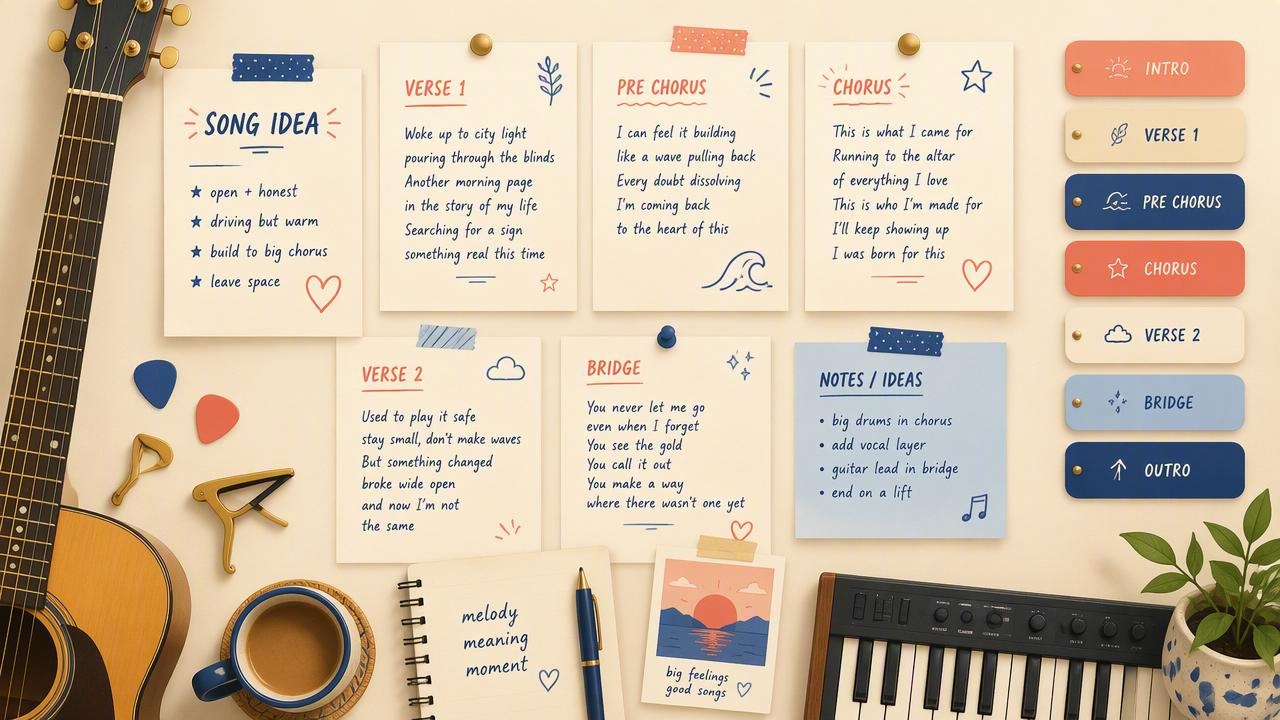 SONG IDEA
★ open + honest
★ driving but warm
★ build to big chorus
★ leave space
VERSE 1
Woke up to city light
pouring through the blinds
Another morning page
in the story of my life
Searching for a sign
something real this time
PRE CHORUS
I can feel it building
like a wave pulling back
Every doubt dissolving
I'm coming back
to the heart of this
CHORUS
This is what I came for
Running to the altar
of everything I love
This is who I'm made for
I'll keep showing up
I was born for this
VERSE 2
Used to play it safe
stay small, don't make waves
But something changed
broke wide open
and now I'm not
the same
BRIDGE
You never let me go
even when I forget
You see the gold
You call it out
You make a way
where there wasn't one yet
NOTES / IDEAS
• big drums in chorus
• add vocal layer
• guitar lead in bridge
• end on a lift
INTRO
VERSE 1
PRE CHORUS
CHORUS
VERSE 2
BRIDGE
OUTRO
melody
meaning
moment
big feelings
good songs